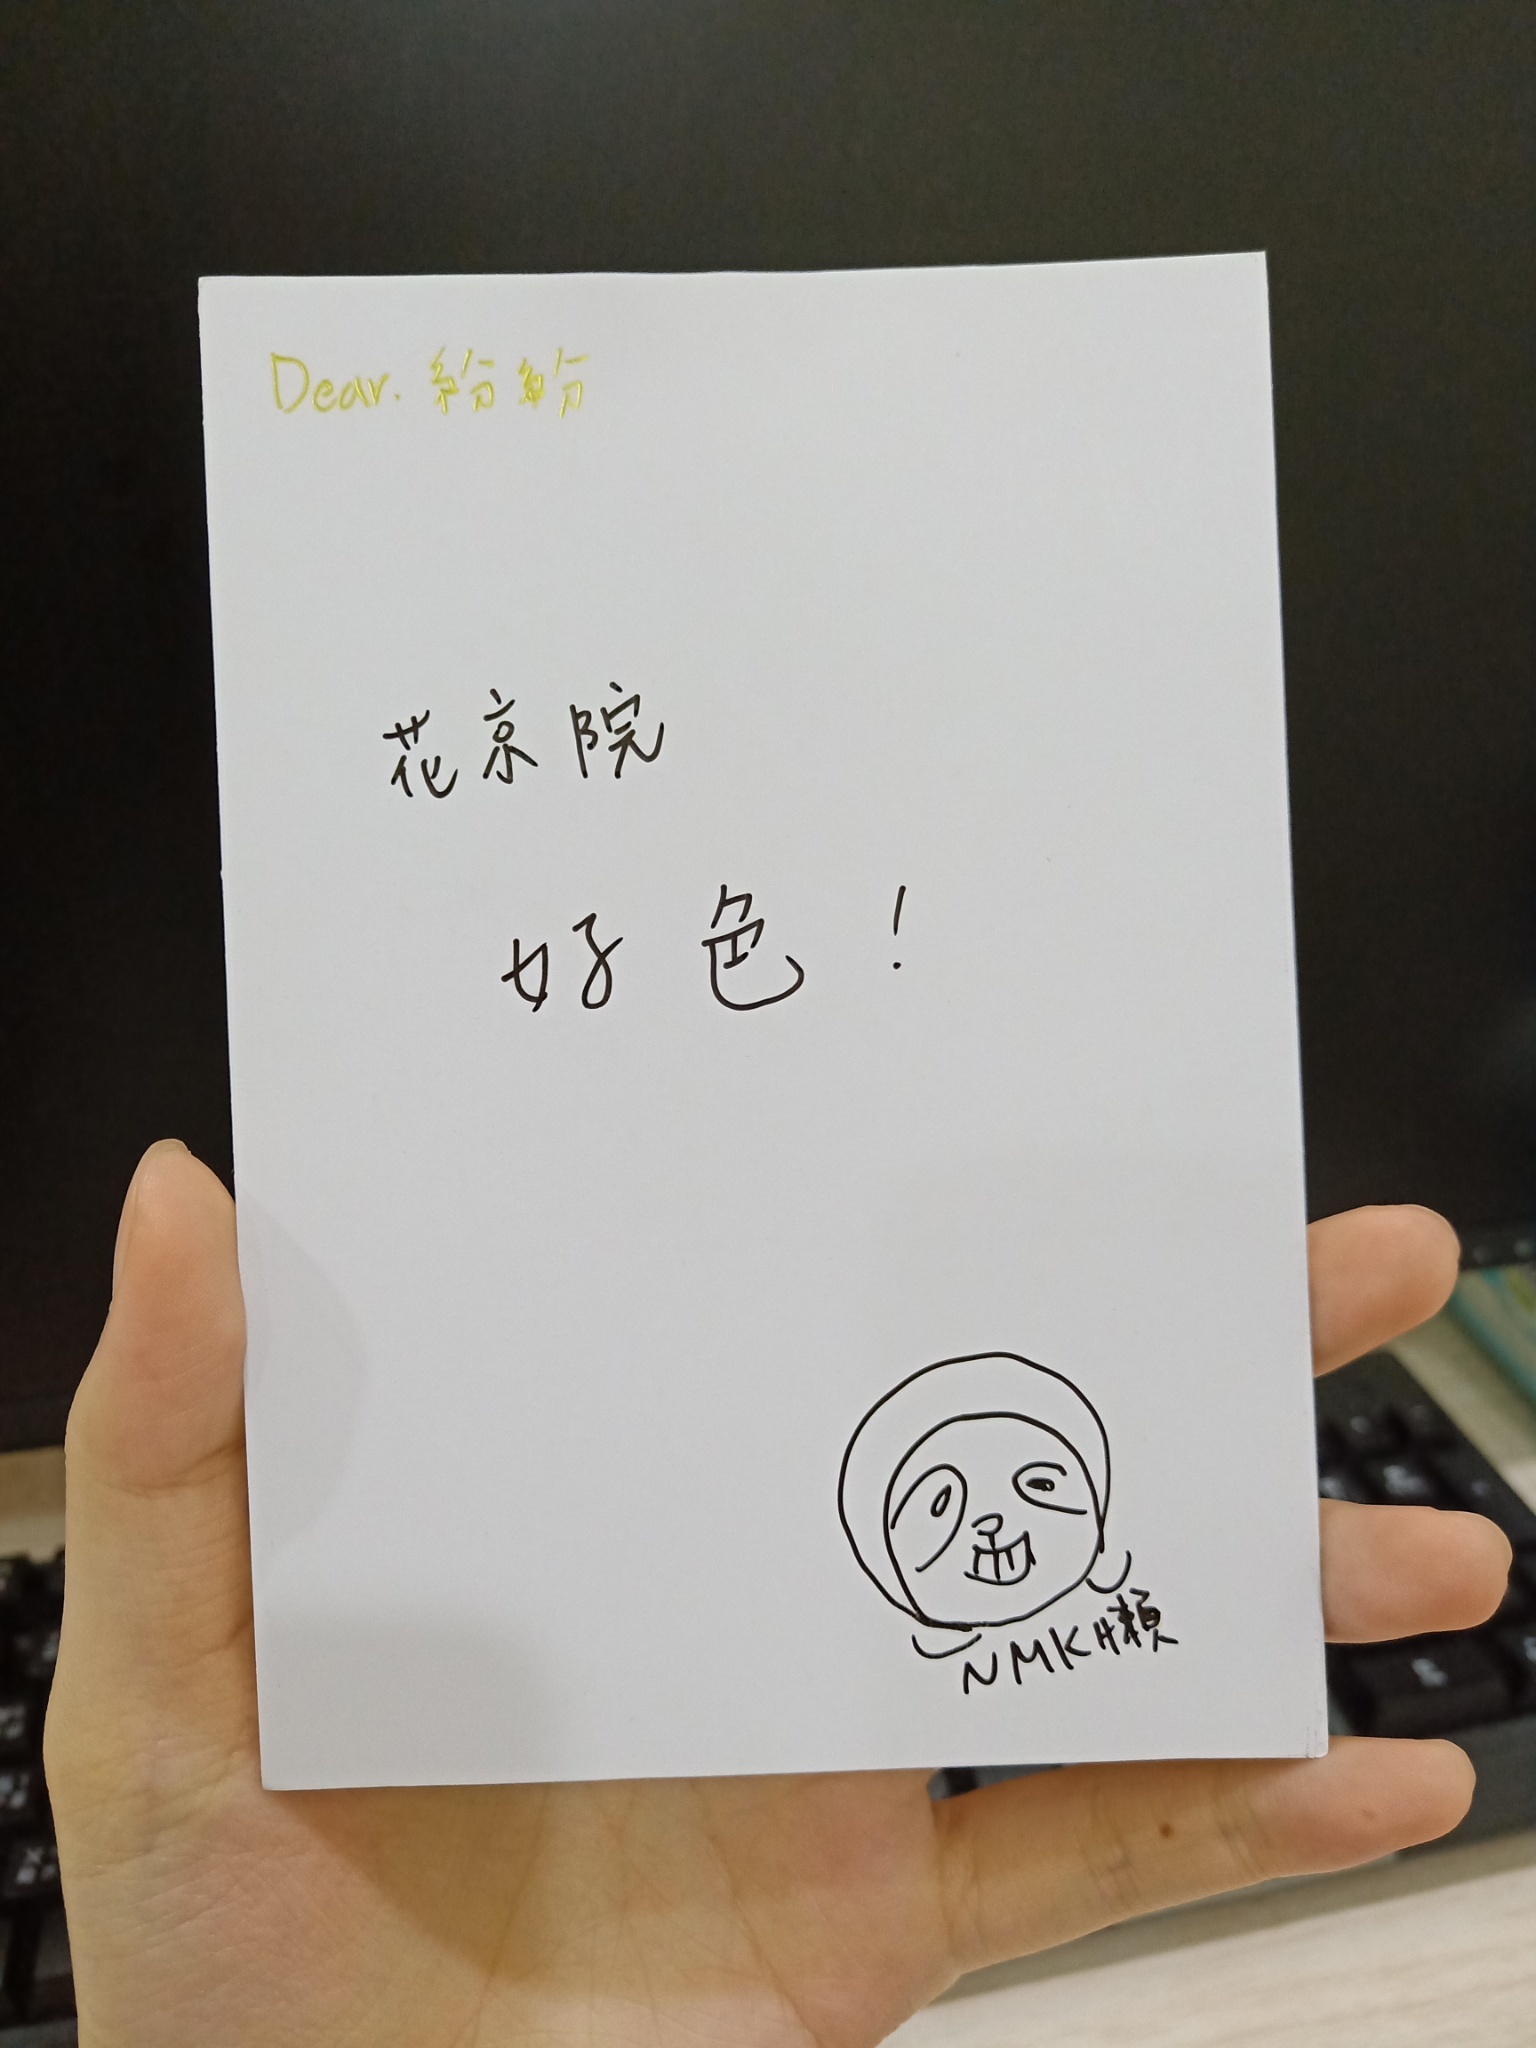 Dear. 紛紛
花京院
好色！
NMK